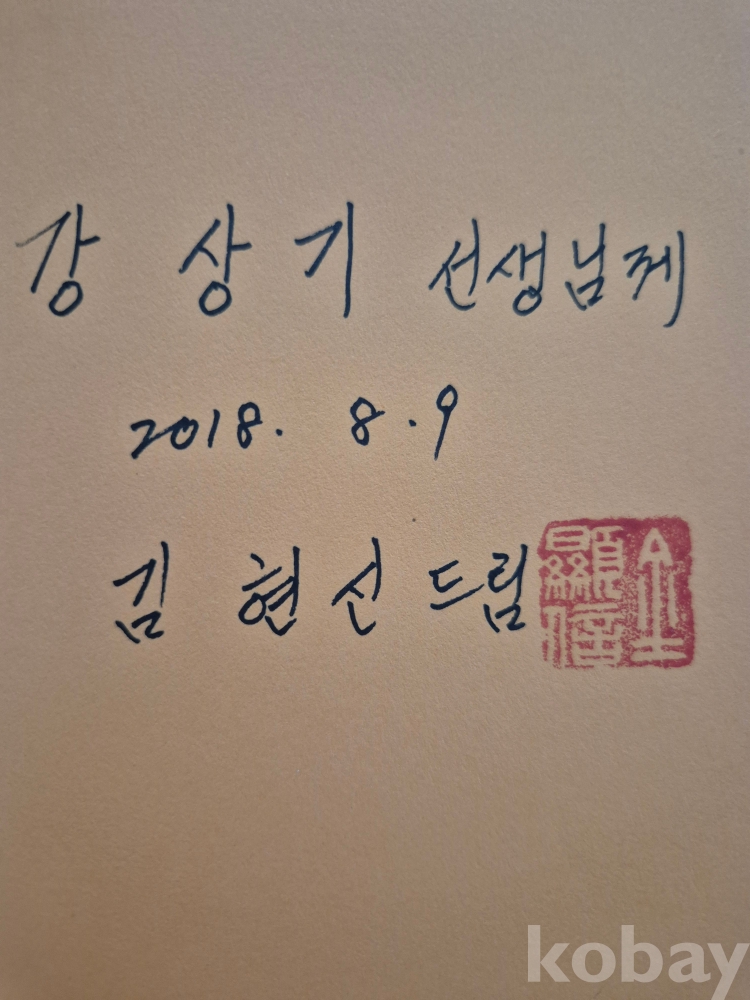 강 상 기 선생님께
2018. 8. 9
김 현 신 드림
金顯信
kobay